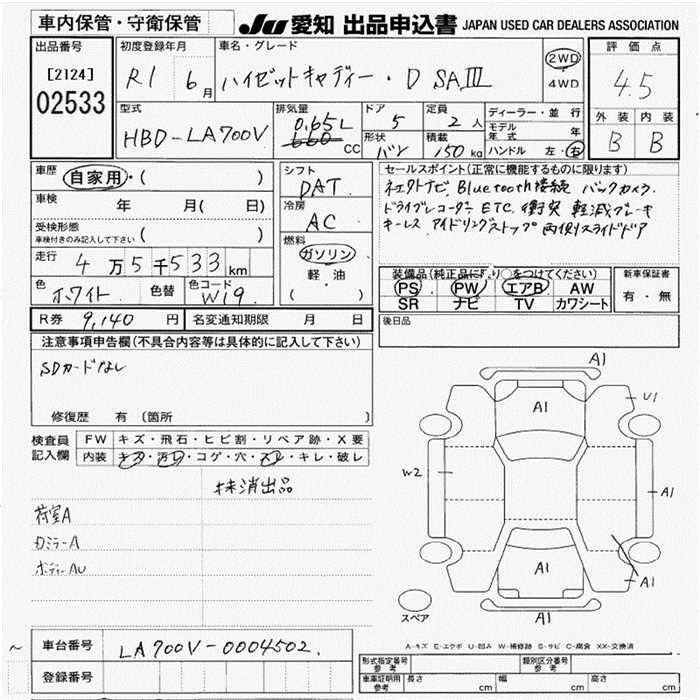 車内保管・守衛保管
JU 愛知 出品申込書 JAPAN USED CAR DEALERS ASSOCIATION
出品番号
[2124]
02533
初度登録年月
R1 6月
車名・グレード
ハイゼットキャディー・D SAⅢ
2WD
4WD
評価点
4.5
外装 内装
B B
型式
HBD-LA700V
排気量
0.65L
660 CC
ドア
5
形状
バン
定員
2人
積載
150kg
ディーラー・並行
モデル年式 年
ハンドル 左・右
車歴
自家用・( )
車検 年 月( 日)
受検形態
車検付きのみ記入して下さい ( )
走行 4万5千533km
色 ホワイト 色替 色コード W19
シフト
DAT
冷房
AC
燃料
ガソリン
軽・油
( )
セールスポイント(正常に機能するものに限ります)
ネクストナビ Bluetooth接続 バックカメラ
ドライブレコーダー ETC 衝突軽減ブレーキ
キーレス アイドリングストップ 両側スライドドア
装備品(純正品により○をつけてください)
PS PW エアB AW
SR ナビ TV カワシート
新車保証書
有・無
R券 9,140円 名変通知期限 月 日
後日品
注意事項申告欄(不具合内容等は具体的に記入して下さい)
SDカードなし
修復歴 有 〔箇所 〕
検査員記入欄
FW キズ・飛石・ヒビ割・リペア跡・X要
内装 キズ・汚レ・コゲ・穴・スレ・キレ・破レ
抹消出品
荷室A
Rミラー A
ボディー AU
A1
A1
U1
W2
A1
A1
A1
A1
スペア
A-キズ E-エクボ U-凹み W-補修跡 S-サビ C-腐食 XX-交換済
~
車台番号 LA700V-0004502
登録番号
形式指定番号 参考
類別区分番号 参考
車庫証明用 参考 長さ cm 幅 cm 高さ cm